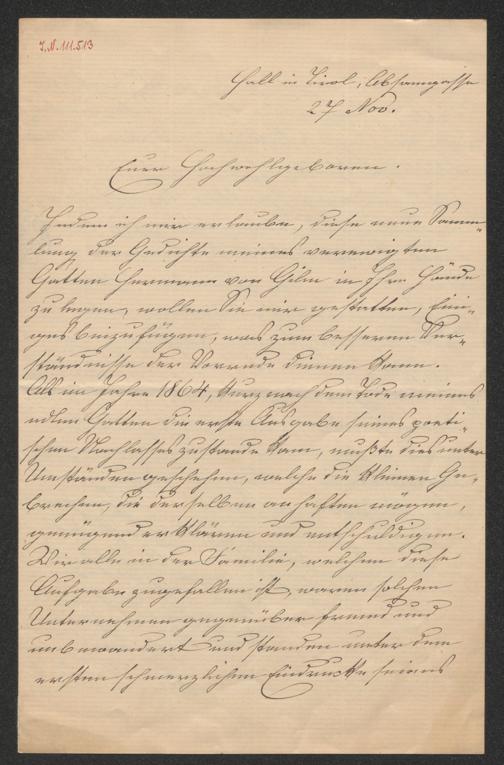 J.N. 111.513
Hall in Tirol, Absamgasse
27 Nov.
Euer Hochwohlgeboren.
Indem ich mir erlaube, diese neue Samm-
lung der Gedichte meines verewigten
Gatten Hermann von Gilm in Ihre Hände
zu legen, wollen Sie mir gestatten, Eini-
ges beizufügen, was zum besseren Ver-
ständnisse der Vorrede dienen kann.
Als im Jahre 1864, kurz nach dem Tode meines
edlen Gatten die erste Ausgabe seines poeti-
schen Nachlasses zustande kam, mußte dies unter
Umständen geschehen, welche die kleinen Ge-
brechen, die derselben anhaften mögen,
genügend erklären und entschuldigen.
Wir alle in der Familie, welchen diese
Aufgabe zugefallen ist, waren solchen
Unternehmen gegenüber fremd und
unbewandert und standen unter dem
ersten schmerzlichen Eindrucke seines